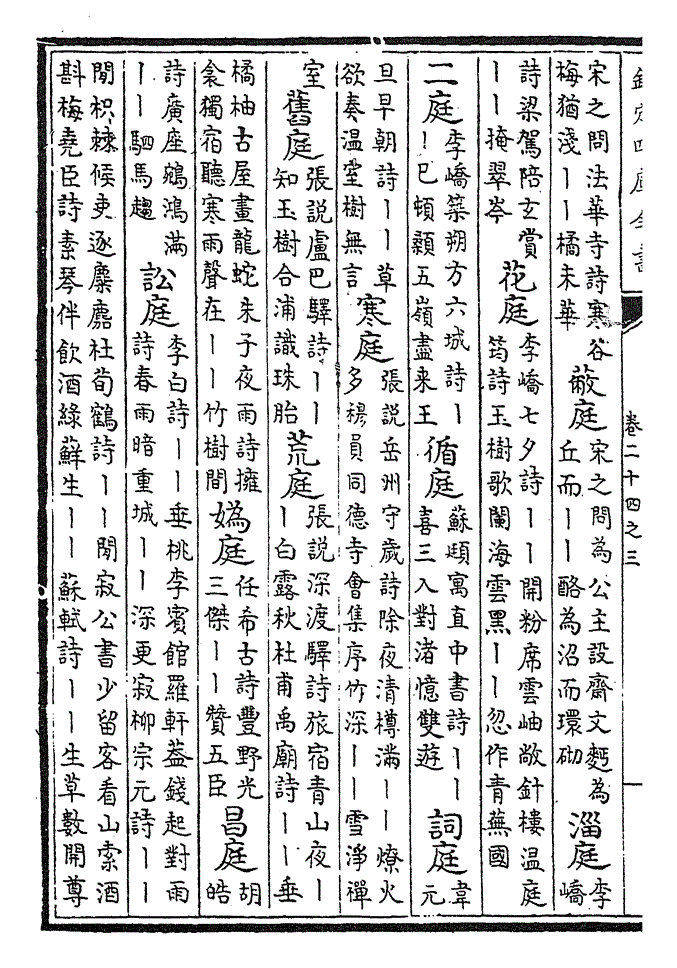 欽定四庫全書 卷二十四之三
宋之問法華寺詩寒谷梅猶淺丨丨橘未華 蔽庭 宋之問為公主設齋文麪為丘而丨丨酪為沼而環砌 淄庭 李嶠
詩梁駕陪玄賞丨丨掩翠岑 花庭 李嶠七夕詩丨丨開粉席雲岫敞針樓温庭筠詩玉樹歌闌海雲黑丨丨忽作青蕪國
二庭 李嶠築朔方六城詩丨丨巳頓顙五嶺盡来王 循庭 蘇頲寓直中書詩丨丨喜三入對渚憶雙遊 詞庭 韋元
旦早朝詩丨丨草欲奏温室樹無言 寒庭 張說岳州守歲詩除夜清樽滿丨丨燎火多穆員同德寺會集序竹深丨丨雪淨禪
室 舊庭 張說盧巴驛詩丨丨知玉樹合浦識珠胎 荒庭 張說深渡驛詩旅宿青山夜丨丨白露秋杜甫禹廟詩丨丨垂
橘柚古屋畫龍蛇朱子夜雨詩擁衾獨宿聽寒雨聲在丨丨竹樹間 媯庭 任希古詩豐野光三傑丨丨贊五臣 昌庭 胡皓
詩廣座鵷鴻滿丨丨駟馬趨 訟庭 李白詩丨丨垂桃李賓館羅軒葢錢起對雨詩春雨暗重城丨丨深更寂柳宗元詩丨丨
閒枳棘候吏逐麋麏杜荀鶴詩丨丨閒寂公書少留客看山索酒斟梅堯臣詩素琴伴飲酒綠蘚生丨丨蘇軾詩丨丨生草數開尊